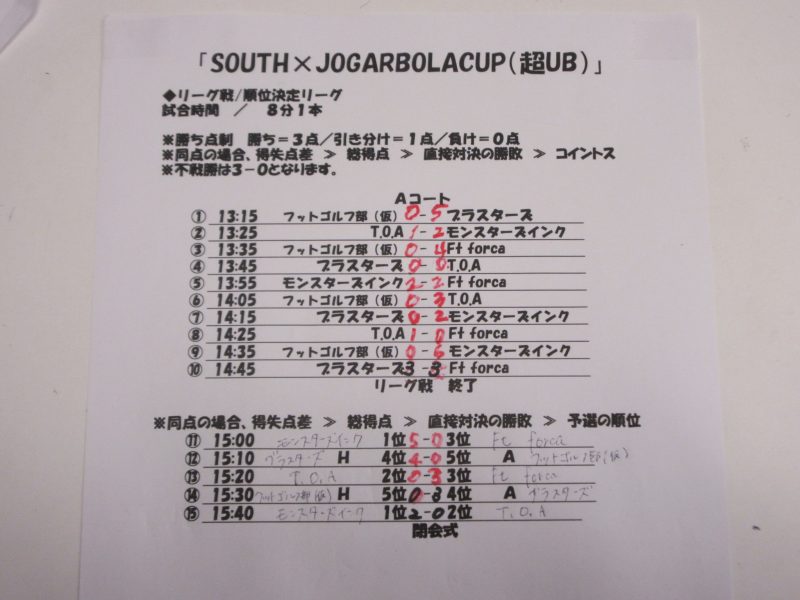 「SOUTH×JOGARBOLACUP(超UB)」
◆リーグ戦/順位決定リーグ
試合時間 / 8分1本
※勝ち点制 勝ち=3点/引き分け=1点/負け=0点
※同点の場合、得失点差 ≫ 総得点 ≫ 直接対決の勝敗 ≫ コイントス
※不戦勝は3-0となります。
Aコート
① 13:15 フットゴルフ部(仮) 0-5 ブラスターズ
② 13:25 T.O.A 1-2 モンスターズインク
③ 13:35 フットゴルフ部(仮) 0-4 Ft forca
④ 13:45 ブラスターズ 0-0 T.O.A
⑤ 13:55 モンスターズインク 2-2 Ft forca
⑥ 14:05 フットゴルフ部(仮) 0-3 T.O.A
⑦ 14:15 ブラスターズ 0-2 モンスターズインク
⑧ 14:25 T.O.A 1-0 Ft forca
⑨ 14:35 フットゴルフ部(仮) 0-6 モンスターズインク
⑩ 14:45 ブラスターズ 3-3 Ft forca
リーグ戦 終了
※同点の場合、得失点差 ≫ 総得点 ≫ 直接対決の勝敗 ≫ 予選の順位
⑪ 15:00 モンスターズインク 1位 5-0 3位 Ft forca
⑫ 15:10 ブラスターズ H 4位 4-0 5位 A フットゴルフ部(仮)
⑬ 15:20 T.O.A 2位 0-3 3位 Ft forca
⑭ 15:30 フットゴルフ部(仮) H 5位 0-3 4位 A ブラスターズ
⑮ 15:40 モンスターズインク 1位 2-0 2位 T.O.A
閉会式